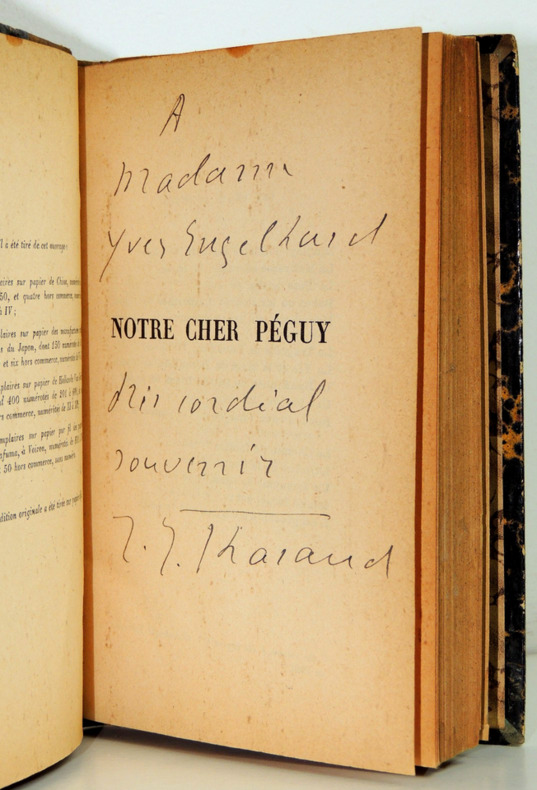 l a été tiré de cet ouvrage :
sur papier de Chine,
50, et quatre hors commerce,
à IV ;
sur papier des manufactures
du Japon, dont 150 numérotés
et six hors commerce, numérotés
sur papier de Hollande
400 numérotés de 201 à
commerce, numérotés de
sur papier pur fil
à Voiron, numérotés de
50 hors commerce, sans numéro.
édition originale a été tiré sur
A
Madame
Yves Engelhard
NOTRE CHER PÉGUY
très cordial
souvenir
J. J. Tharaud